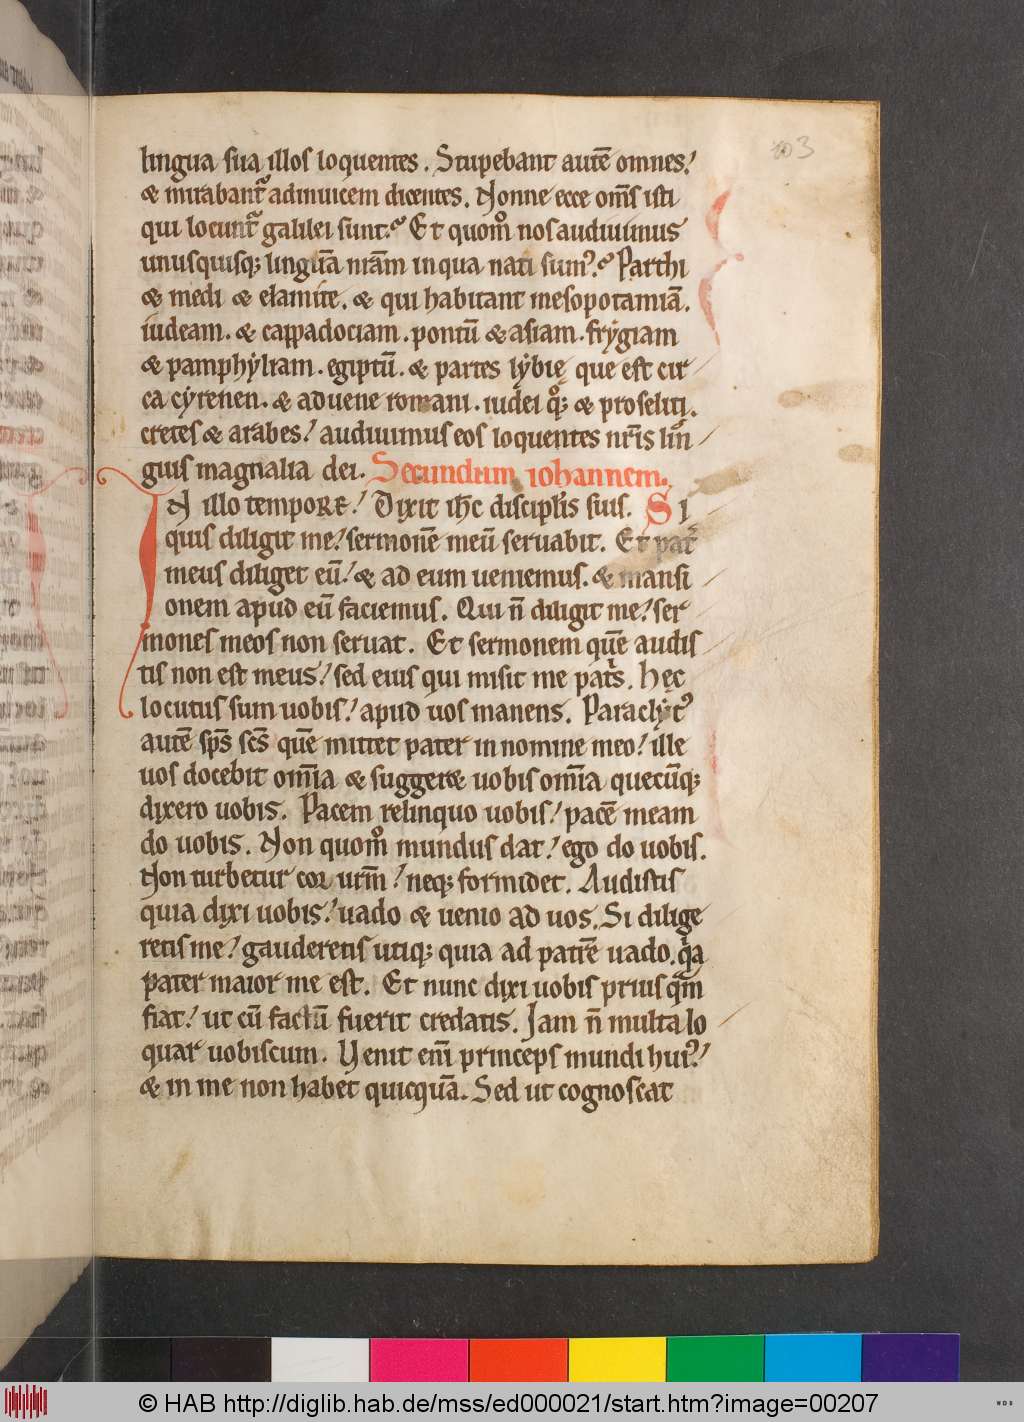 103
lingua sua illos loquentes. Stupebant autē omnes!
& mirabant᷑ adinuicem dicentes. Nonne ecce om̄s isti
qui locunt᷑ galilei sunt? Et quom̊ nos audiuimus
unusquisq; linguā nr̄am in qua nati sumꝰ? Parthi
& medi & elamite. & qui habitant mesopotamiā.
iudeam. & cappadociam. pontū & asiam. frẏgiam
& pamphẏliam. egiptū. & partes lẏbię que est cir
ca cẏrenen. & aduene romani. iudei q̊; & proseliti.
cretes & arabes! audiuimus eos loquentes nr̄is lin
guis magnalia dei. Secundum iohannem.
IN illo tempore! Dixit ih̄c discipl̄is suis. Si
quis diligit me! sermonē meū seruabit. Et pat̄
meus diliget eū! & ad eum ueniemus. & mansi
onem apud eū faciemus. Qui n̄ diligit me! ser
mones meos non seruat. Et sermonem quē audis
tis non est meus! sed eius qui misit me pat̄s. Hęc
locutus sum uobis! apud uos manens. Paraclẏtꝰ
autē sp̄s sc̄s quē mittet pater in nomine meo! ille
uos docebit om̄ia & sugger& uobis om̄ia quecūq;
dixero uobis. Pacem relinquo uobis! pacē meam
do uobis. Non quom̊ mundus dat! ego do uobis.
Non turbetur cor ur̄m! neq; formidet. Audistis
quia dixi uobis! uado & uenio ad uos. Si dilige
retis me! gauderetis utiq; quia ad patrē uado. qa
pater maior me est. Et nunc dixi uobis prius qm̄
fiat! ut cū factū fuerit credatis. Jam n̄ multa lo
quar uobiscum. Uenit eni princeps mundi huiꝰ!
& in me non habet quicquā. Sed ut cognoscat
© HAB http://diglib.hab.de/mss/ed000021/start.htm?image=00207